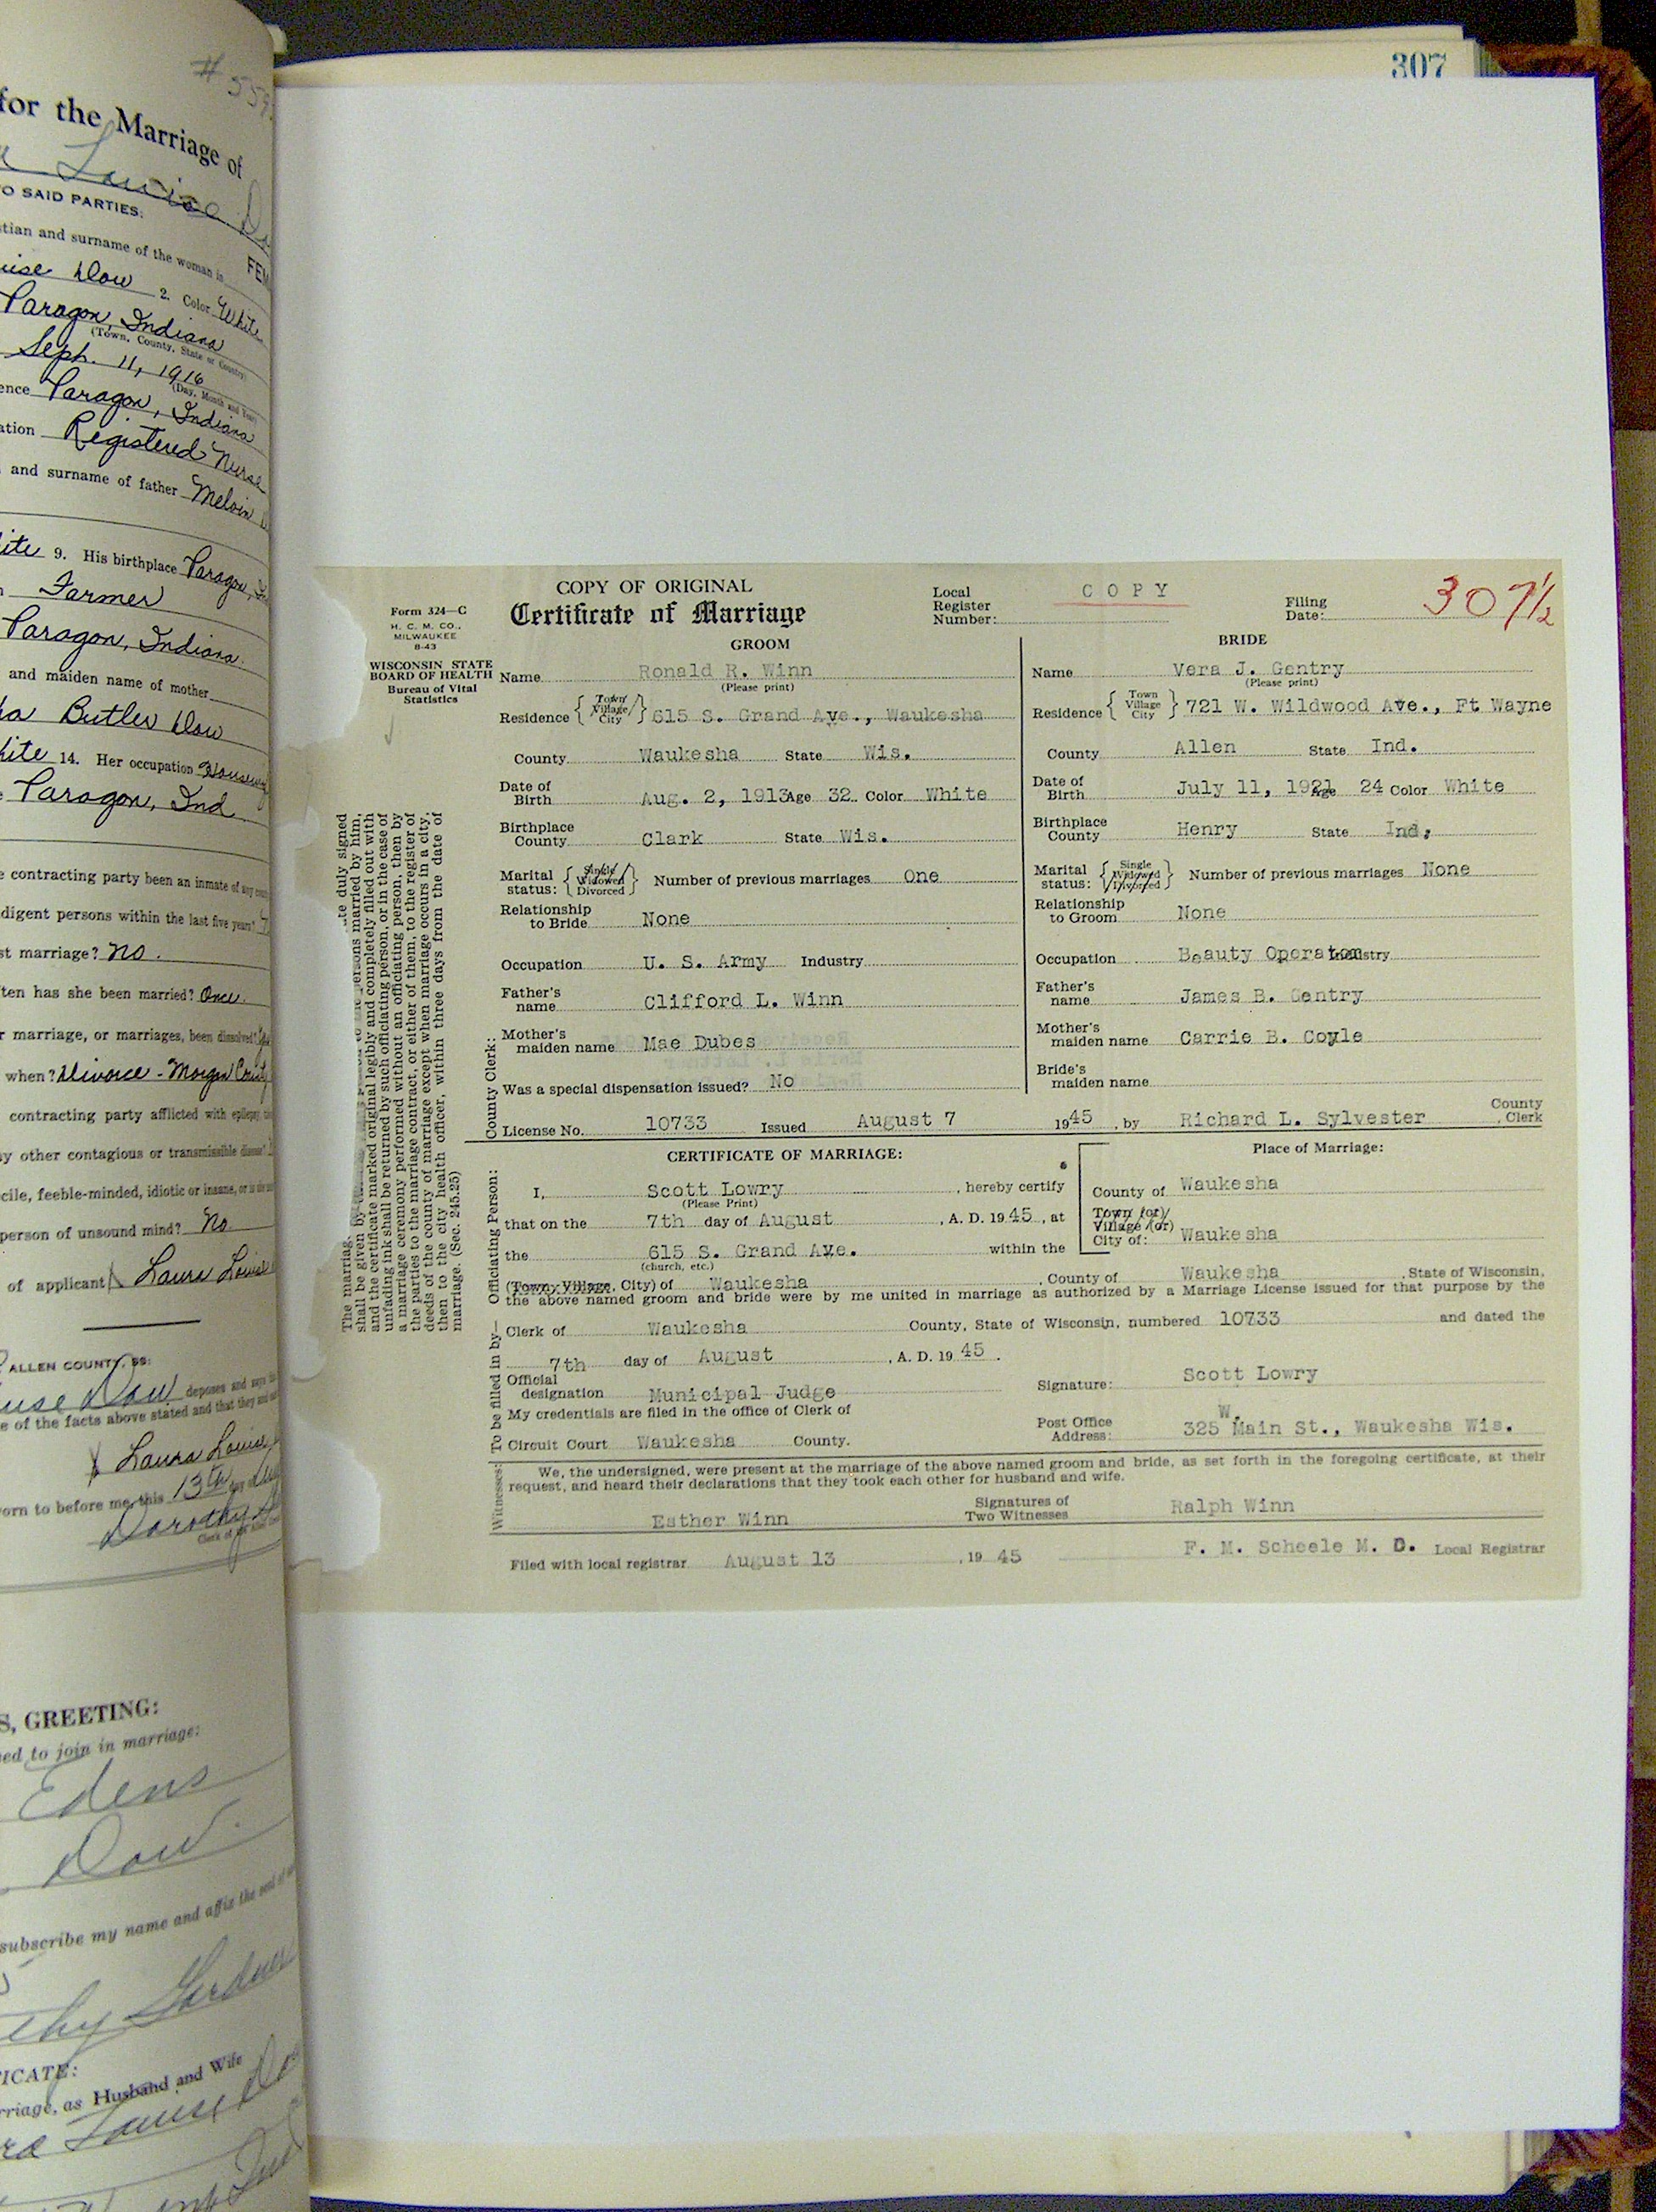 # 559
for the Marriage of
Louise
TO SAID PARTIES:
and surname of the woman is
FEM
Dow 2. Color White
Paragon, Indiana
(Town, County, State or Country)
Sept. 11, 1916
(Day, Month and Year)
Paragon, Indiana
Registered Nurse
and surname of father Melvin
9. His birthplace Paragon,
Farmer
Paragon, Indiana.
and maiden name of mother
Butler Dow
14. Her occupation
Paragon, Ind
contracting party been an inmate of any
digent persons within the last five years?
marriage? No.
has she been married? Once.
marriage, or marriages, been dissolved?
when? Divorce - Morgan County
contracting party afflicted with epilepsy,
other contagious or transmissible disease?
feeble-minded, idiotic or insane, or
person of unsound mind? No
of applicant Laura Louise
ALLEN COUNTY, SS:
Dow deposes and says
of the facts above stated and that they
Laura Louise
to before me, this 13th day
Dorothy
Clerk of the Allen
GREETING:
to join in marriage:
Edens
Dow.
subscribe my name and affix the seal of
Gardner
riage, as Husband and Wife
Louise
307
COPY OF ORIGINAL
Certificate of Marriage
Form 324—C
H. C. M. CO.,
MILWAUKEE
8-43
WISCONSIN STATE
BOARD OF HEALTH
Bureau of Vital
Statistics
Local
Register
Number:
COPY
Filing
Date:
307½
GROOM
Name Ronald R. Winn
(Please print)
Residence { Town Village City } 615 S. Grand Ave., Waukesha
County Waukesha State Wis.
Date of Birth Aug. 2, 1913 Age 32 Color White
Birthplace County Clark State Wis.
Marital status: { Single Widowed Divorced } Number of previous marriages One
Relationship to Bride None
Occupation U. S. Army Industry
Father's name Clifford L. Winn
Mother's maiden name Mae Dubes
Was a special dispensation issued? No
BRIDE
Name Vera J. Gentry
(Please print)
Residence { Town Village City } 721 W. Wildwood Ave., Ft Wayne
County Allen State Ind.
Date of Birth July 11, 1921 Age 24 Color White
Birthplace County Henry State Ind.
Marital status: { Single Widowed Divorced } Number of previous marriages None
Relationship to Groom None
Occupation Beauty Operator Industry
Father's name James B. Gentry
Mother's maiden name Carrie B. Coyle
Bride's maiden name
County Clerk:
License No. 10733 Issued August 7 1945, by Richard L. Sylvester County Clerk
The marriage te duly signed
shall be given by persons married by him,
and the certificate marked original legibly and completely filled out with
unfading ink shall be returned by such officiating person, or in the case of
a marriage ceremony performed without an officiating person, then by
the parties to the marriage contract, or either of them, to the register of
deeds of the county of marriage except when marriage occurs in a city,
then to the city health officer, within three days from the date of
marriage. (Sec. 245.25)
To be filled in by—Officiating Person:
CERTIFICATE OF MARRIAGE:
I, Scott Lowry, hereby certify
(Please Print)
that on the 7th day of August, A. D. 1945, at
the 615 S. Grand Ave. within the
(church, etc.)
Place of Marriage:
County of Waukesha
Town (or)
Village (or)
City of: Waukesha
(Town, Village, City) of Waukesha, County of Waukesha, State of Wisconsin,
the above named groom and bride were by me united in marriage as authorized by a Marriage License issued for that purpose by the
Clerk of Waukesha County, State of Wisconsin, numbered 10733 and dated the
7th day of August, A. D. 1945.
Official designation Municipal Judge
Signature: Scott Lowry
My credentials are filed in the office of Clerk of
Circuit Court Waukesha County.
Post Office Address: 325 W. Main St., Waukesha Wis.
Witnesses:
We, the undersigned, were present at the marriage of the above named groom and bride, as set forth in the foregoing certificate, at their
request, and heard their declarations that they took each other for husband and wife.
Esther Winn Signatures of Two Witnesses Ralph Winn
Filed with local registrar August 13, 1945 F. M. Scheele M. D. Local Registrar